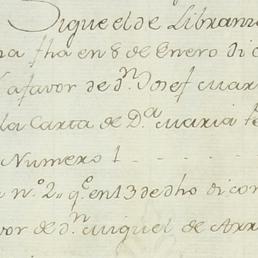 Sigue el de Libran
ha fha en 8 de Enero di o
a favor de Dn. Josef Mar
la Carta de Da. Maria
Numero 1 - - - -
n.o 2,, qe en 13 de dho di con
vor de Dn. Miguel de Arr